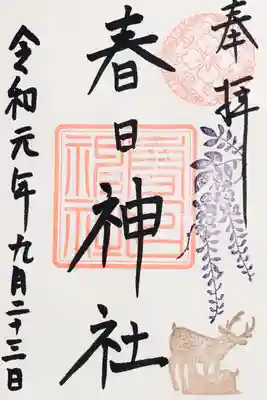 奉拝
春日神社
春日
神社
令和元年九月二十三日